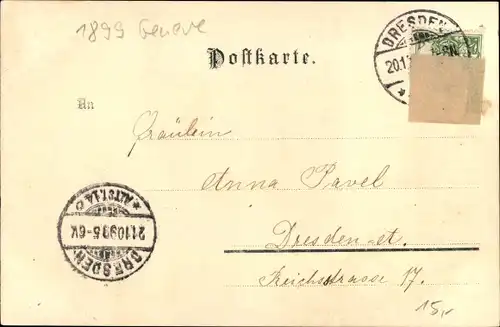 1899 Geneve
Postkarte.
DRESDEN
20.1
An
Fräulein
Anna Pavel
Dresden-A.
Reichsstrasse 17.
DRESDEN
* ALTST.14 c
21.10.99.5-6V.
15,-